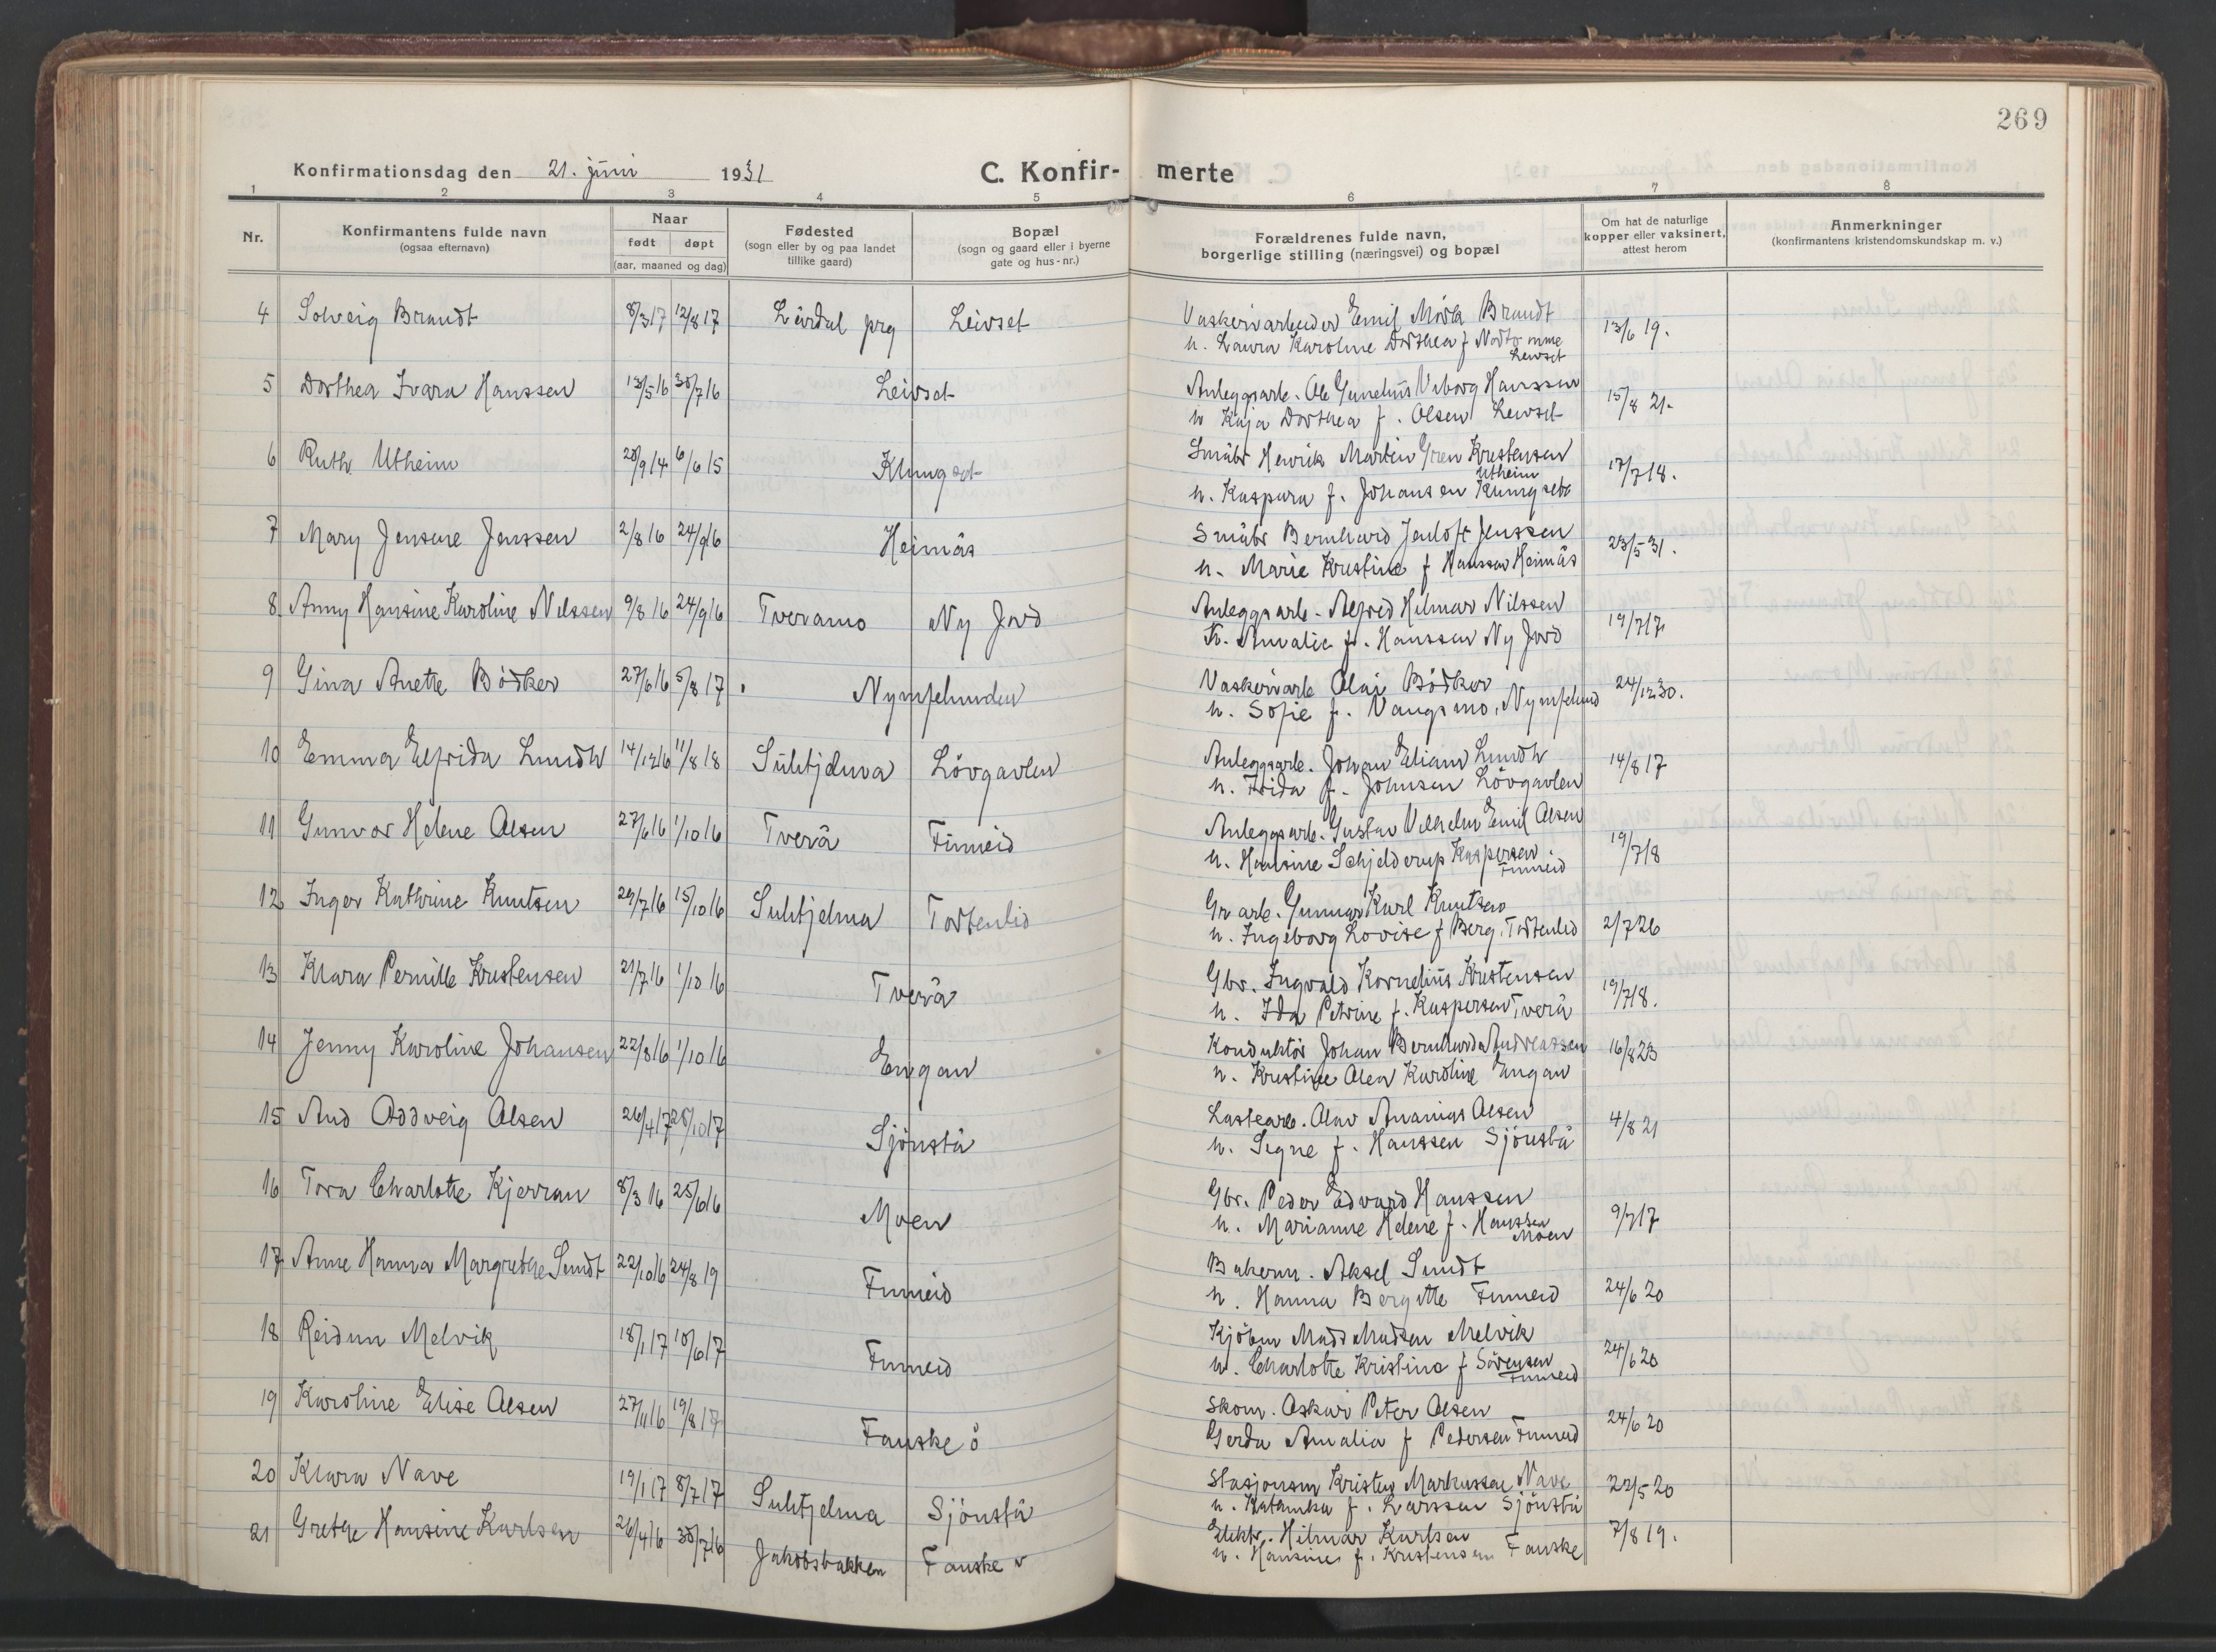 269
Konfirmationsdag den 21. juni 1931
C. Konfir- merte
1 2 3 4 5 6 7 8
Nr.
Konfirmantens fulde navn
(ogsaa efternavn)
Naar
født døpt
(aar, maaned og dag)
Fødested
(sogn eller by og paa landet
tillike gaard)
Bopæl
(sogn og gaard eller i byerne
gate og hus-nr.)
Forældrenes fulde navn,
borgerlige stilling (næringsvei) og bopæl
Om hat de naturlige
kopper eller vaksinert,
attest herom
Anmerkninger
(konfirmantens kristendomskundskap m. v.)
4 Solveig Brandt 8/3 17 12/8 17 Leivset Vaskeriarbeider Emil Brandt 13/6 19.
h. Laura Karoline Dorthea f.
Leivset
5 Dorthea Ivara Hanssen 13/5 16 30/7 16 Leivset Anleggsarb. Ole Hanssen 15/8 21.
h Kaja Dorthea f. Olsen Leivset
6 Ruth Utheim 28/9 14 6/6 15 Klungset Småbr Henrik Martin Kristensen 17/7 18.
Utheim
h. Kaspara f. Johansen Klungset
7 Mary Jensine Jenssen 2/8 16 24/9 16 Heimås Småbr Bernhard Jentoft Jenssen 23/5 31.
h. Marie Kristine f Hanssen Heimås
8 Anny Hansine Karoline Nilssen 9/8 16 24/9 16 Tveramo Ny Jord Anleggsarb. Alfred Hilmar Nilssen 19/7 17
h. Amalie f. Hanssen Ny Jord
9 Gina Anette Bödker 27/6 16 5/8 17 Nymfelunden Vaskeriarb Olai Bödker 24/12 30.
h. Sofie f. Vangsmo, Nymfelund
10 Emma Elfrida Lundh 14/12 16 11/8 18 Sulitjelma Lövgavlen Anleggsarb. Johan Lundh 14/8 17
h. Frida f. Johnsen Lövgavlen
11 Gunvor Helene Olsen 27/6 16 1/10 16 Tverå Finneid Anleggsarb. Gustav Vilhelm Emil Olsen 19/7 18
h. Hansine Schjelderup Kaspersen
Finneid
12 Inger Kathrine Knutsen 29/7 16 15/10 16 Sulitjelma Tortenlid Gr arb. Gunnar Karl Knutsen 2/7 26
h. Ingeborg Lovise f Berg, Tortenlid
13 Klara Pernille Kristensen 21/7 16 1/10 16 Tverå Gbr. Ingvald Kornelius Kristensen 19/7 18.
h. Ida Petrine f. Kaspersen Tverå
14 Jenny Karoline Johansen 22/8 16 1/10 16 Engan Konduktör Johan Bernhard Andreassen 16/8 23
h. Kristine Olea Karoline Engan
15 Aud Oddveig Olsen 26/4 17 28/10 17 Sjönstå Lastearb. Olav Ananias Olsen 4/8 21
h. Signe f. Hanssen Sjönstå
16 Tora Charlotte Kjerran 8/3 16 25/6 16 Moen Gbr. Peder Edvard Hanssen 9/7 17
h. Marianne Helene f. Hanssen
Moen
17 Anne Hanna Margrethe Sundt 22/10 16 24/8 19 Finneid Bakerm. Aksel Sundt 24/6 20
h. Hanna Bergitte Finneid
18 Reidun Melvik 18/1 17 10/6 17 Finneid Kjöbm Mads Madsen Melvik 24/6 20
h. Charlotte Kristina f Sörensen
Finneid
19 Karoline Elise Olsen 27/11 16 19/8 17 Fauske ö Skom. Oskar Peter Olsen 24/6 20
Gerda Amalia f Pedersen Finneid
20 Klara Nave 19/1 17 8/7 17 Sulitjelma Sjönstå Stasjonsm Kristen Markussen Nave 22/5 20
h. f. Larssen Sjönstå
21 Grethe Hansine Karlsen 26/4 16 30/7 16 Jakobsbakken Fauske v Elektr. Hilmar Karlsen 7/8 19.
h. Hansine f. Kristensen Fauske